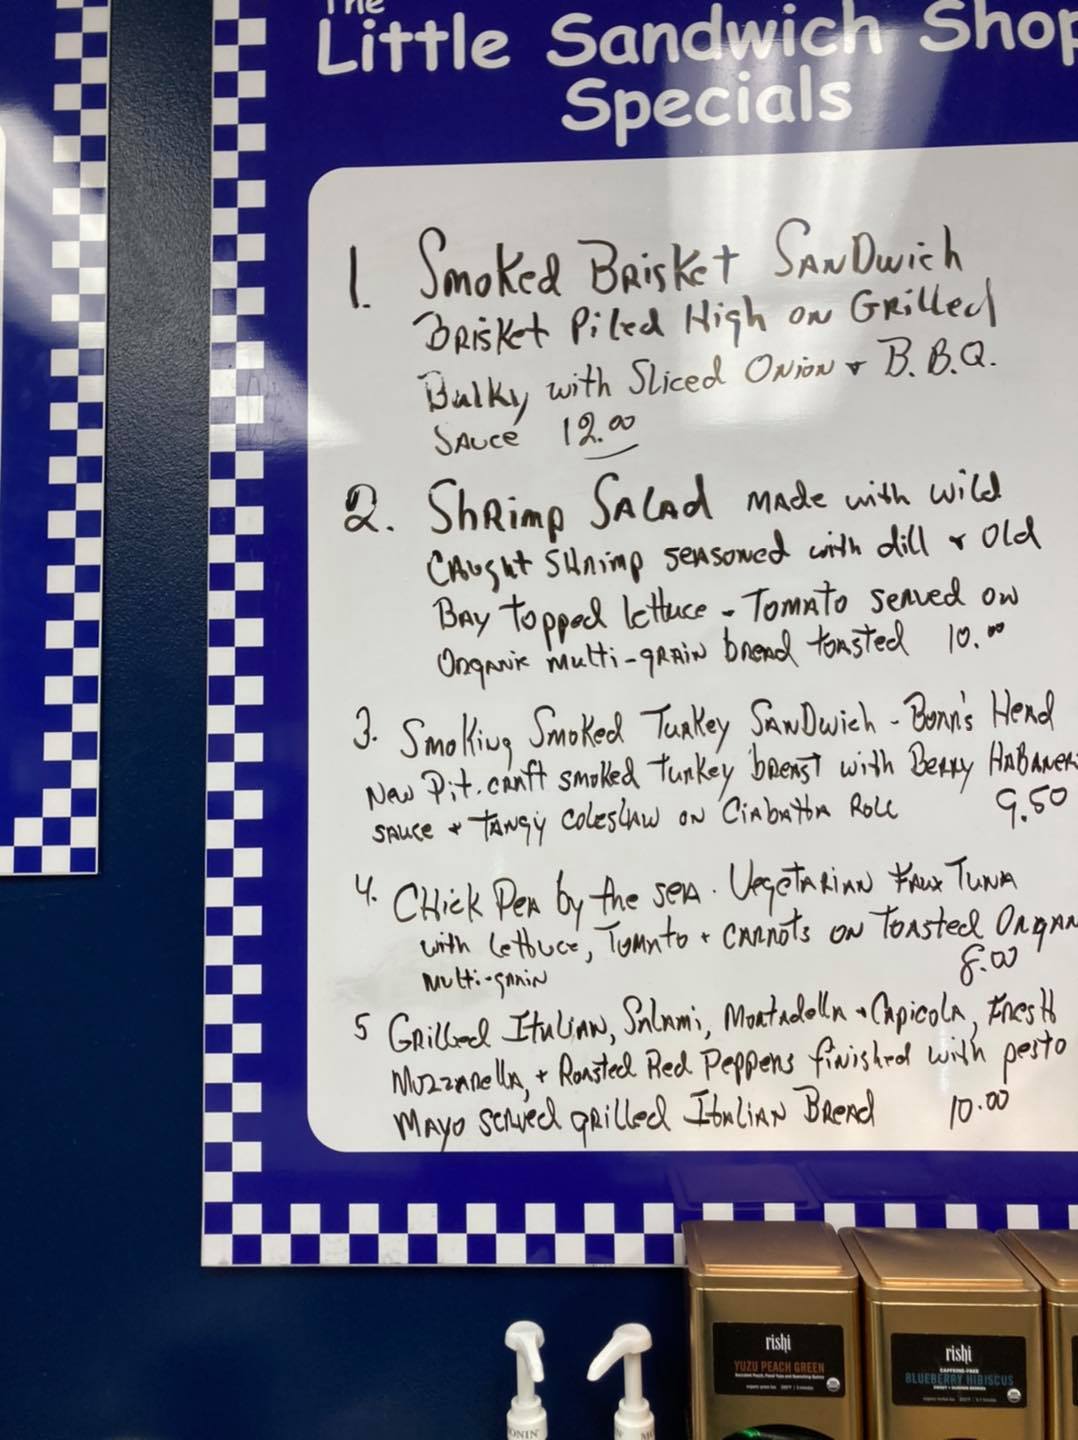 The
Little Sandwich Shop
Specials
1. Smoked Brisket Sandwich
Brisket Piled High on Grilled
Bulky with Sliced Onion + B.B.Q.
Sauce 12.00
2. Shrimp Salad made with wild
caught shrimp seasoned with dill + Old
Bay topped lettuce - Tomato served on
Organic multi-grain bread toasted 10.00
3. Smoking Smoked Turkey Sandwich - Boar's Head
New Pit-craft smoked turkey breast with Berry Habaner
sauce + tangy coleslaw on Ciabatta Roll 9.50
4. Chick Pea by the sea. Vegetarian Faux Tuna
with lettuce, Tomato + carrots on Toasted Organ
multi-grain 8.00
5 Grilled Italian, Salami, Mortadella + Capicola, Fresh
Mozzarella, + Roasted Red Peppers finished with pesto
Mayo served grilled Italian Bread 10.00
rishi
YUZU PEACH GREEN
rishi
CAFFEINE-FREE
BLUEBERRY HIBISCUS
ONIN